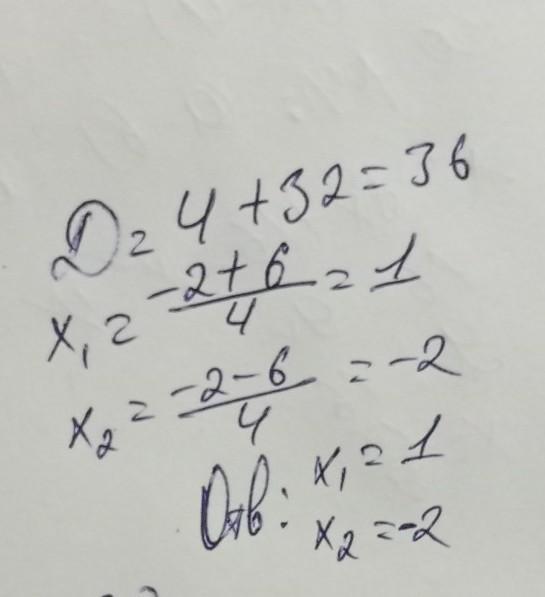 D = 4 + 32 = 36
x₁ = \frac{-2+6}{4} = 1
x₂ = \frac{-2-6}{4} = -2
Отв: x₁ = 1
x₂ = -2